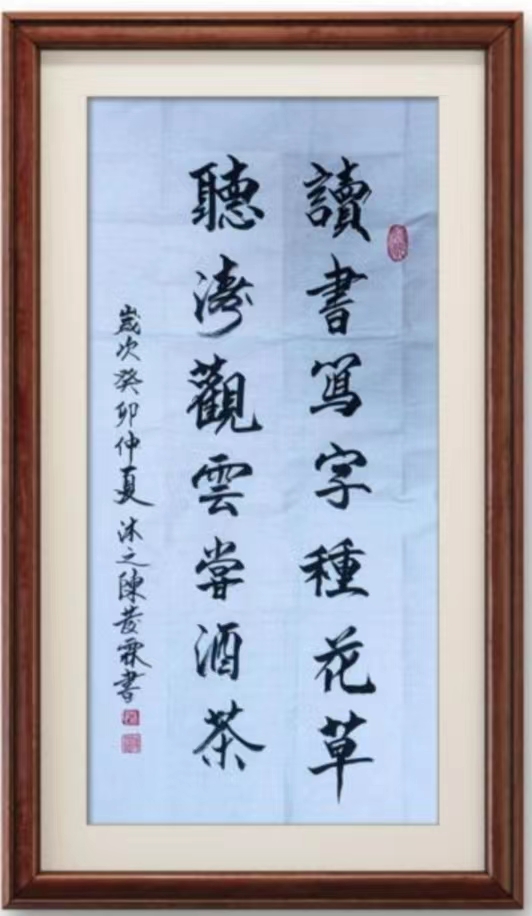 讀書寫字種花草
聽濤觀雲嘗酒茶
歲次癸卯仲夏沐之陳發霖書